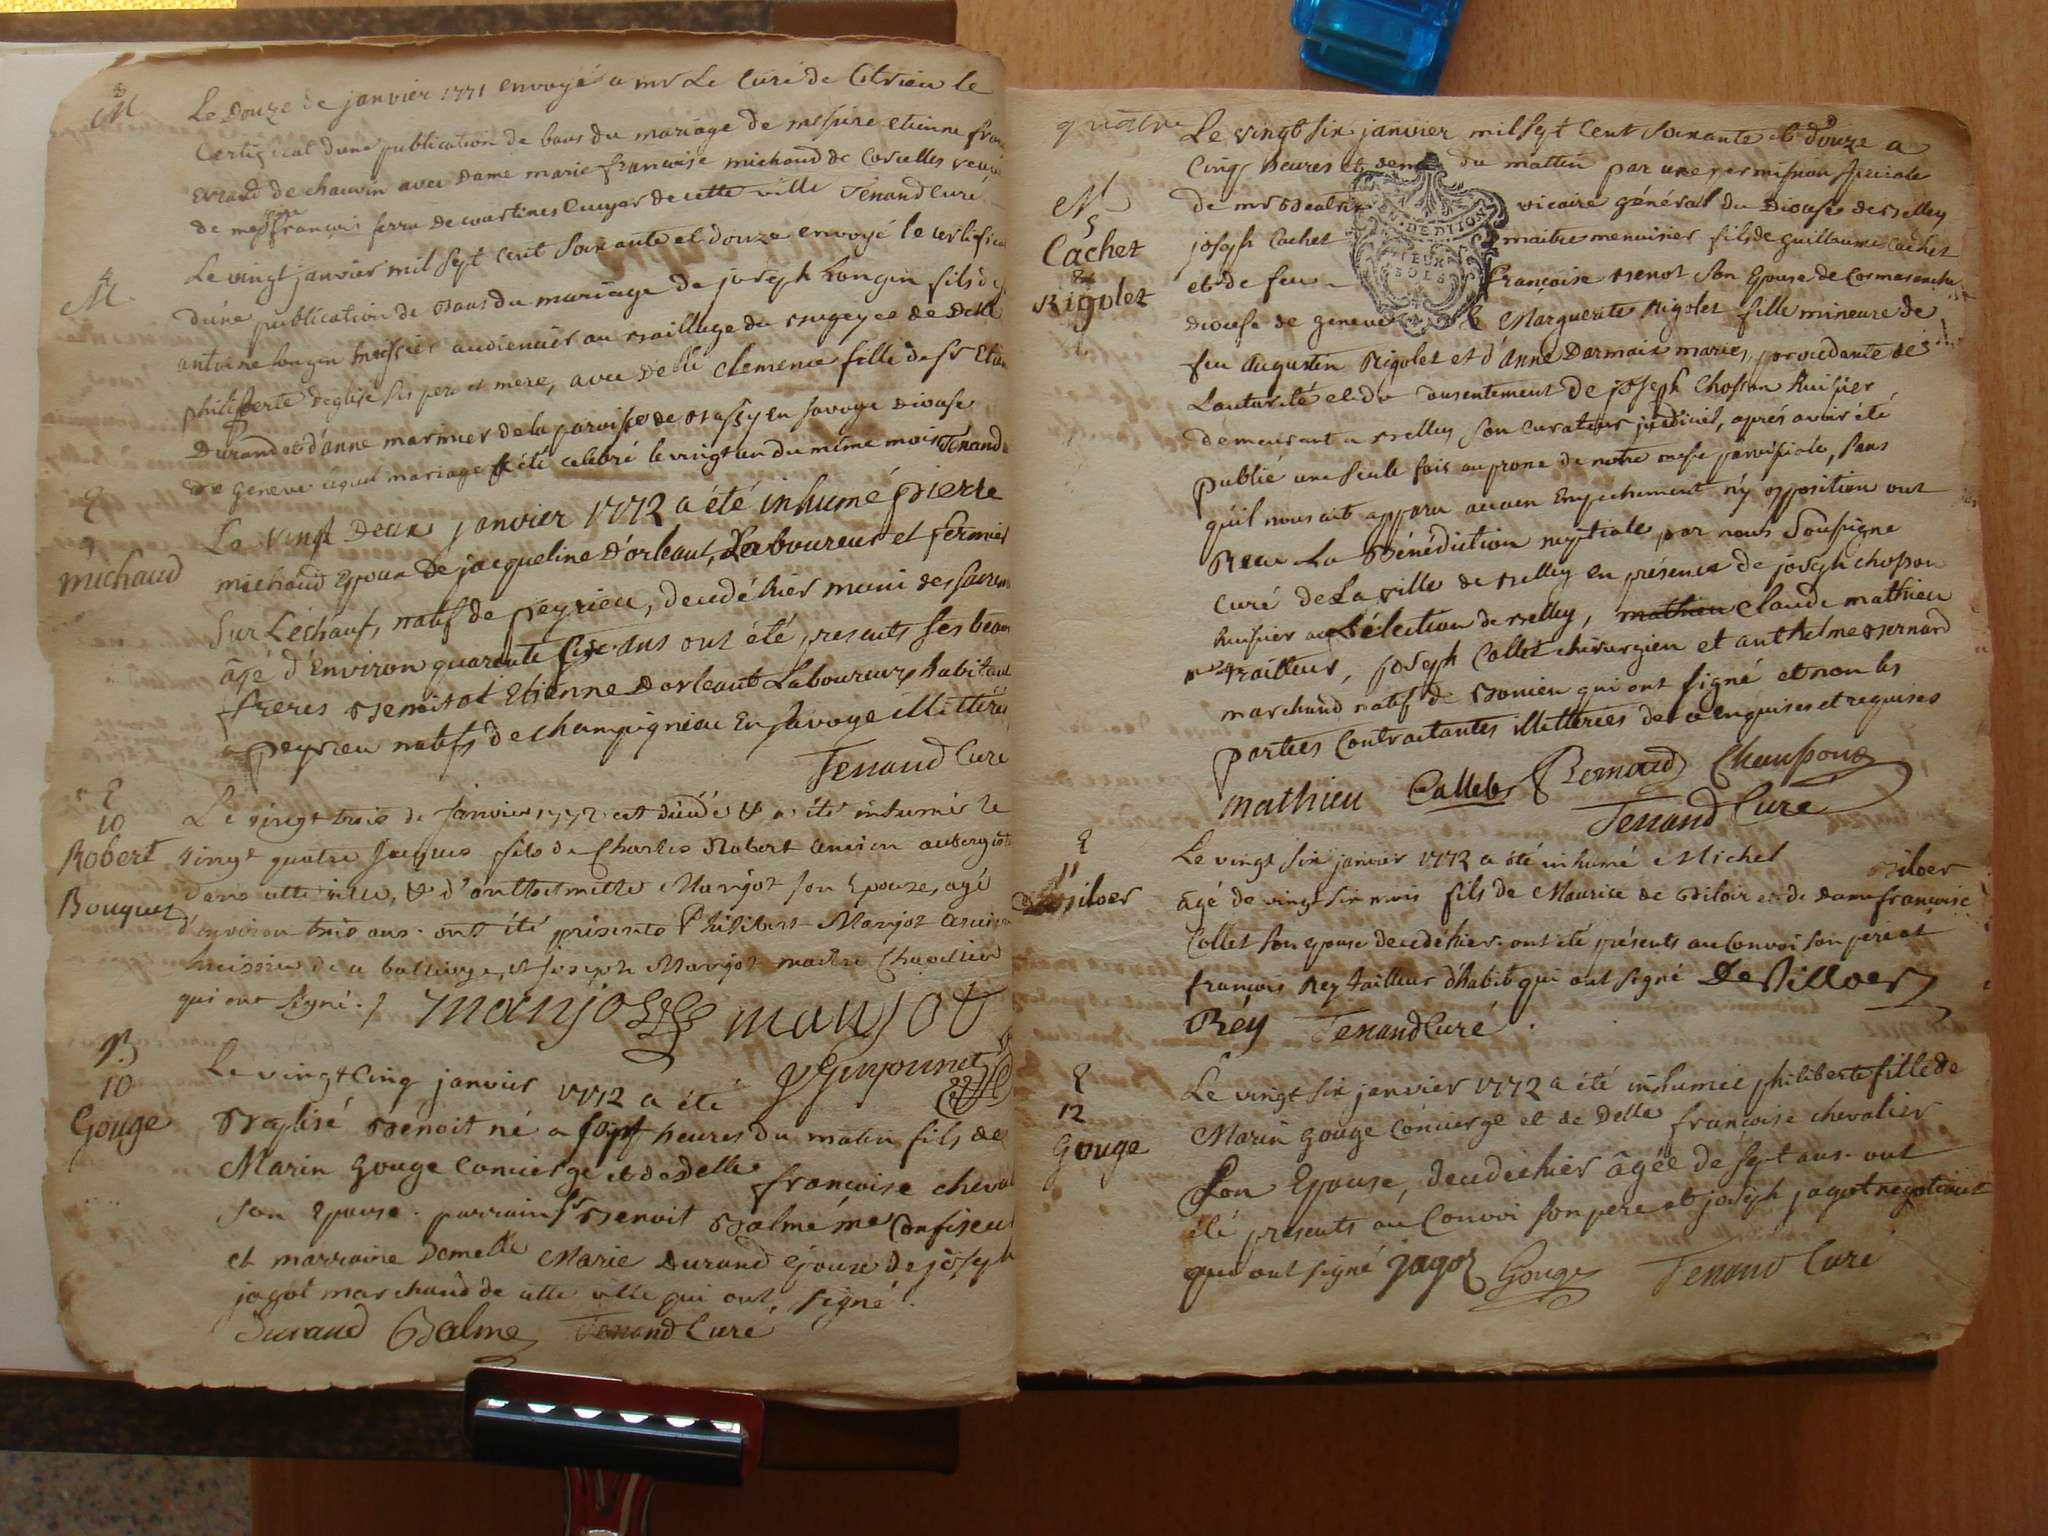 3
M
Le Douze de janvier 1771 envoyé a mr Le Curé de Citrieu le
Certificat d'une publication de bans du mariage de messire etienne
de chauvin avec Dame marie francoise michaud de Corcelles veuve
de messire françois ferra de courtines Ecuyer de cette ville Tenand Curé
4
M
Le vingt janvier mil sept cent soixante et douze envoyé le certificat
d'une publication de Bans du mariage de joseph Longin fils d
antoine longin huissier audiencier au Baillage du Bugey et de Delle
philiberte deglise ses pere et mere, avec Delle Clemence fille de Sr
Durand et d'anne marinier de la paroisse de Bassy en Savoye Diocese
de Geneve lequel mariage a été celebré le vingt un du même mois Tenand
E
9
michaud
Le vingt Deux janvier 1772 a été inhumé pierre
michaud Epoux De jacqueline D'orleant, Laboureur et fermier
Sur Léchaut, natif de peyrieu, decedé hier muni des sacrem
âgé d'Environ quarante ans ont été presents ses beau
freres Benoit et Etienne Dorleant Laboureurs habitant
a peyrieu natifs de champignieu En Savoye illitterés
Tenand Curé
E
10
Robert
Bouquet
Le vingt trois de Janvier 1772 est décédé & a été inhumé le
vingt quatre Jacques fils de Charles Robert ancien aubergiste
dans cette ville, & d'anthelmette Manjot son Epouse, agé
d'environ trois ans. ont été présents Philibert Manjot ancien
huissier de ce balliage, et joseph Manjot maître Chapelier
qui ont signé.
manjot manjot
JGuyonnet
B
10
Gouge
Le vingt Cinq janvier 1772 a été
Baptisé Benoit né a sept heures du matin fils de
Marin Gouge Concierge et de Delle françoise cheval
son Epouse. parrain Sr Benoit Balme me Confiseur
et marraine Demelle Marie Durand Epouse de joseph
jagot marchand de cette ville qui ont signé.
Durand Balme Tenand Curé
quatre
N
5
Cachet
&
Rigolet
Le vingt six janvier mil sept Cent soixante et douze a
Cinq heures et demi du mattin par une permission speciale
de mr vicaire général du Diocese de Belley
joseph Cachet maitre menuisier fils de guillaume Cachet
et de feu françoise Benot son Epouse de
Diocese de geneve & Marguerite Rigolet fille mineure de
feu augustin Rigolet et d'anne Darmais mariés, procedante de
L'autorité et du consentement de joseph Chosson huissier
demeurant a Belley son curateur judiciel, après avoir été
publié une seule fois au prone de notre messe paroissiale, sans
qu'il nous ait apparu aucun Empechement n'y opposition ont
Recu La Bénédiction nuptiale par nous soussigne
Curé de La ville de Belley en présence de joseph chosson
huissier a L'élection de Belley, mathieu claude mathieu
traiteur, joseph Collet chirurgien et anthelme Bernard
marchand natif de qui ont signé et non les
parties Contractantes illitterées de ce enquises et requises
mathieu Callet Bernard Chaussons
Tenand Curé
E
11
Biloer
Le vingt six janvier 1772 a été inhumé Michel Biloer
âgé de vingt six mois fils de Maurice de Biloer et de Dame françoise
Collet son epouse decedé hier. ont été présents au Convoi son pere et
françois Rey tailleur d'habits qui ont signé DeBilloer
Réy Tenand Curé
E
12
Gouge
Le vingt six janvier 1772 a été inhumée philiberte fille de
Marin Gouge Concierge et de Delle françoise chevalier
son Epouse, decedée hier âgée de sept ans. ont
été presents au Convoi son pere et joseph jagot negotiant
qui ont signé jagot Gouge Tenand Curé